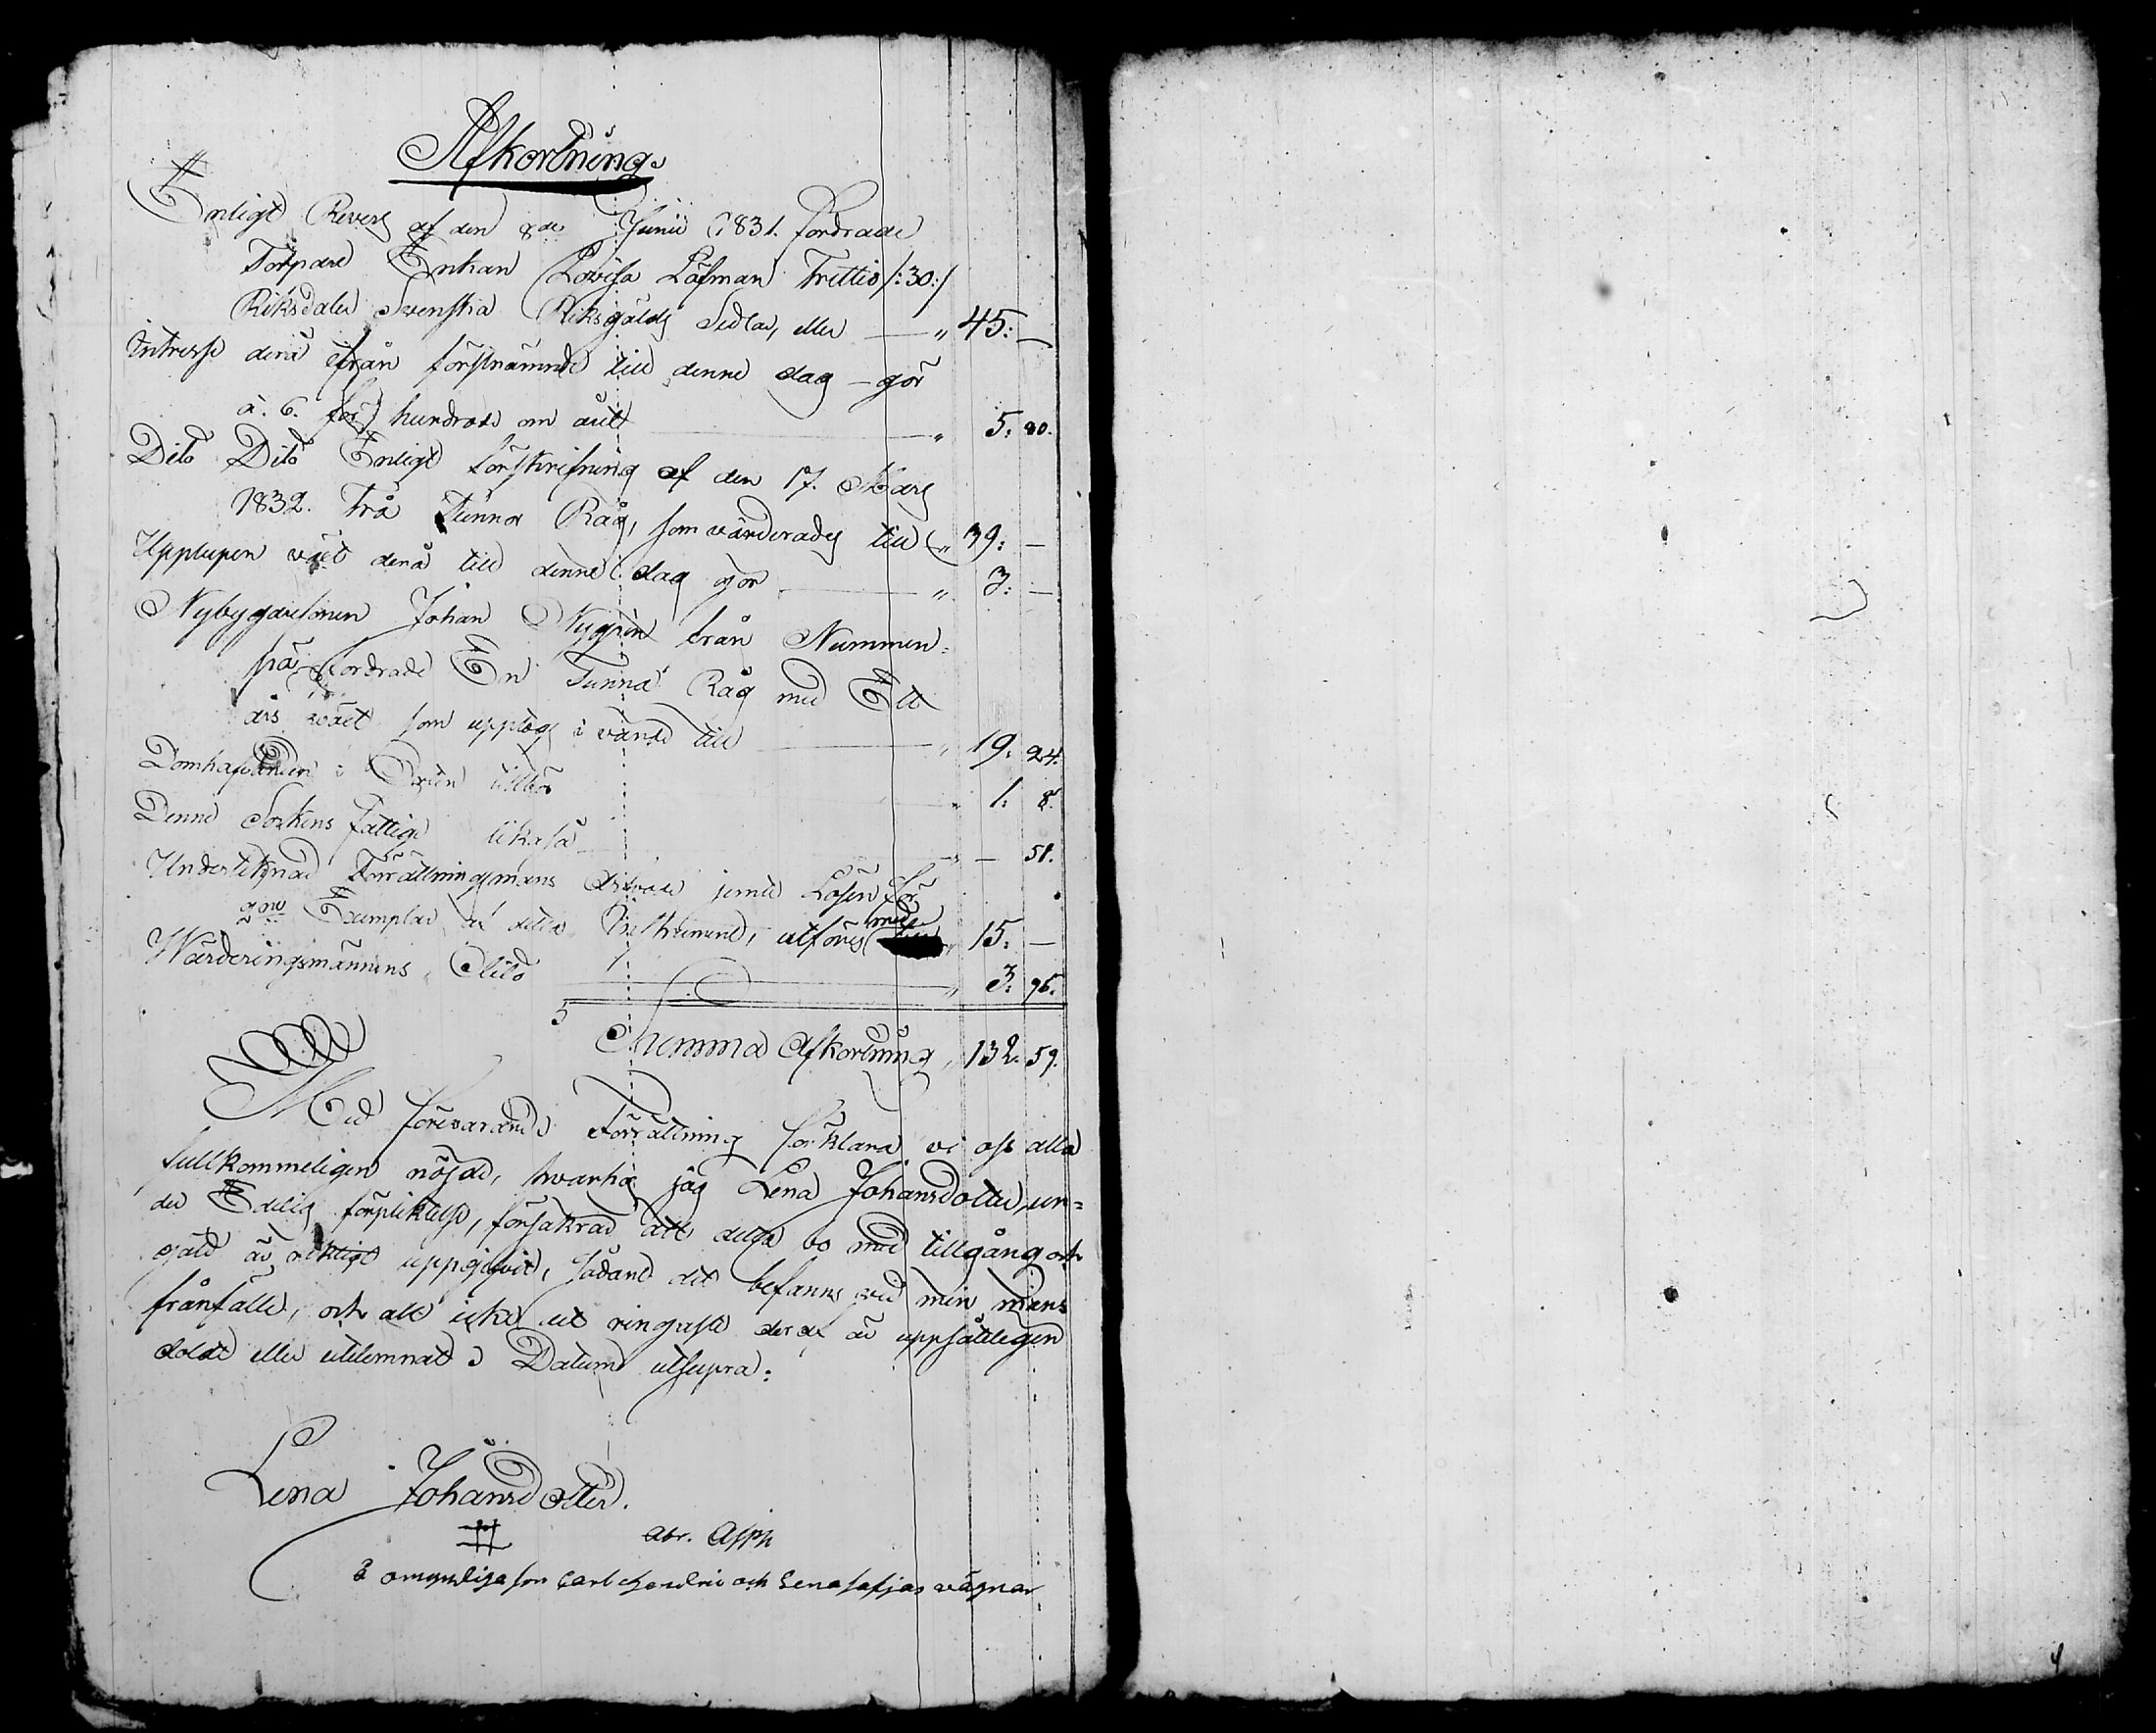 Afkortning.
Enligt Revers af den 8de Junii 1831. fordrade
Torpare Enkan Lovisa Löfman Trettio /:30:/
Riksdaler Svenska Riksgälds Sedlar, eller — " 45: —
Intresse derå ifrån förstnämnde till denne dag — gör
à. 6. för hundrade om året — " 5: 20.
Dito Dito Enligt förskrifning af den 17. Mars
1832. Två Tunnor Råg, som värderades till " 39: —
Upplupen växt derå till denne dag gör — " 3: —
Nybyggaresonen Johan Nygren från Nummen=
pä, fordrade En Tunna Råg med Ett
års växt som upptogs i värde till — " 19: 24.
Domhafvanden i Orten tillkom — " 1: 8.
Denne Sockens fattige likaså — " — 51.
Underteknad Förrättningsmans Arfvode jemte Lösen för
2ne Exemplar af detta Instrument, utföres med " 15: —
Wärderingsmännens Dito — " 3: 96.
Summa Afkortning, 132. 59.
Med förevarande Förrättning förklara vi oss alla
fullkommeligen nöjde, hvarhos jag Lena Johansdotter, un=
der Edelig förpliktelse, försäkrar att detta bo med tillgång och
gäld är riktigt uppgifvit, sådant det befanns vid min mans
frånfälle, och att icke det ringaste deraf är uppsåtligen
doldt eller utelemnat. Datum utsupra:
Lena Johansdotter.
Abr. Asph
å omyndiga son Carl Hendric och Lena Sofias vägnar
4